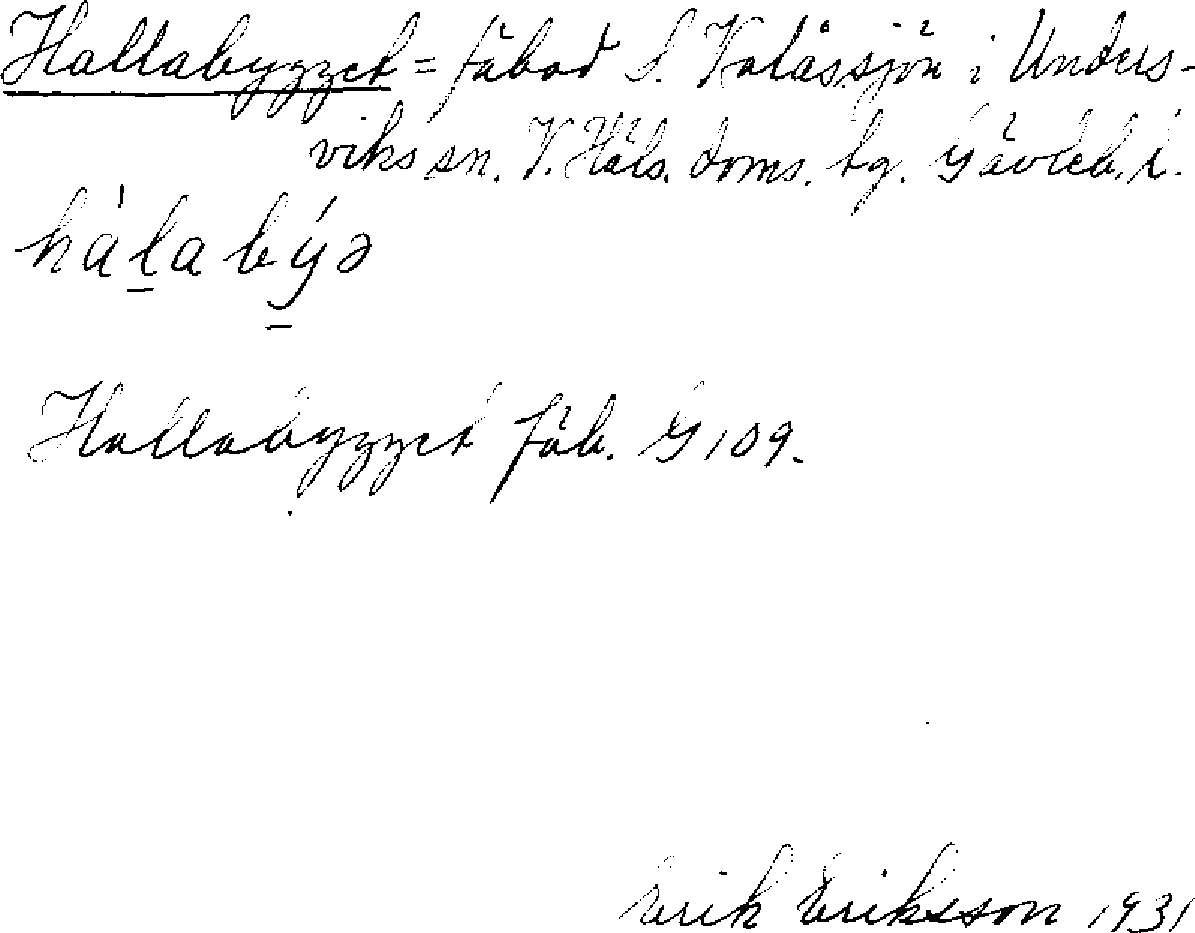 Hallabygget = fäbod S. Kolåssjön i Unders-
viks sn. V. Häls. doms. tg. Gävleb. l.
hàl̠abý̠ə
Hallabygget fäb. G 109.
Erik Eriksson 1931